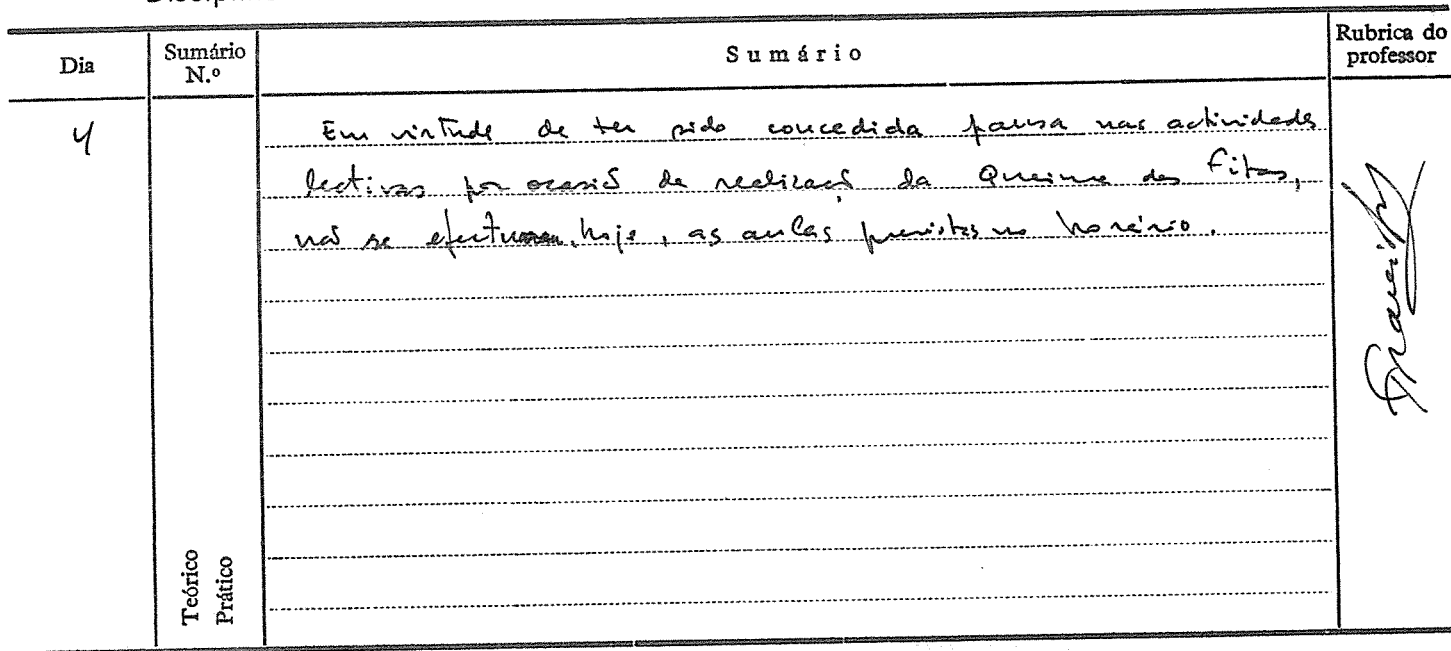 Dia
Sumário N.º
Sumário
Rubrica do professor
4
Em virtude de ter sido concedida pausa nas actividades
lectivas por ocasião da realização da Queima das Fitas,
não se efectuaram, hoje, as aulas previstas no horário.
Teórico
Prático